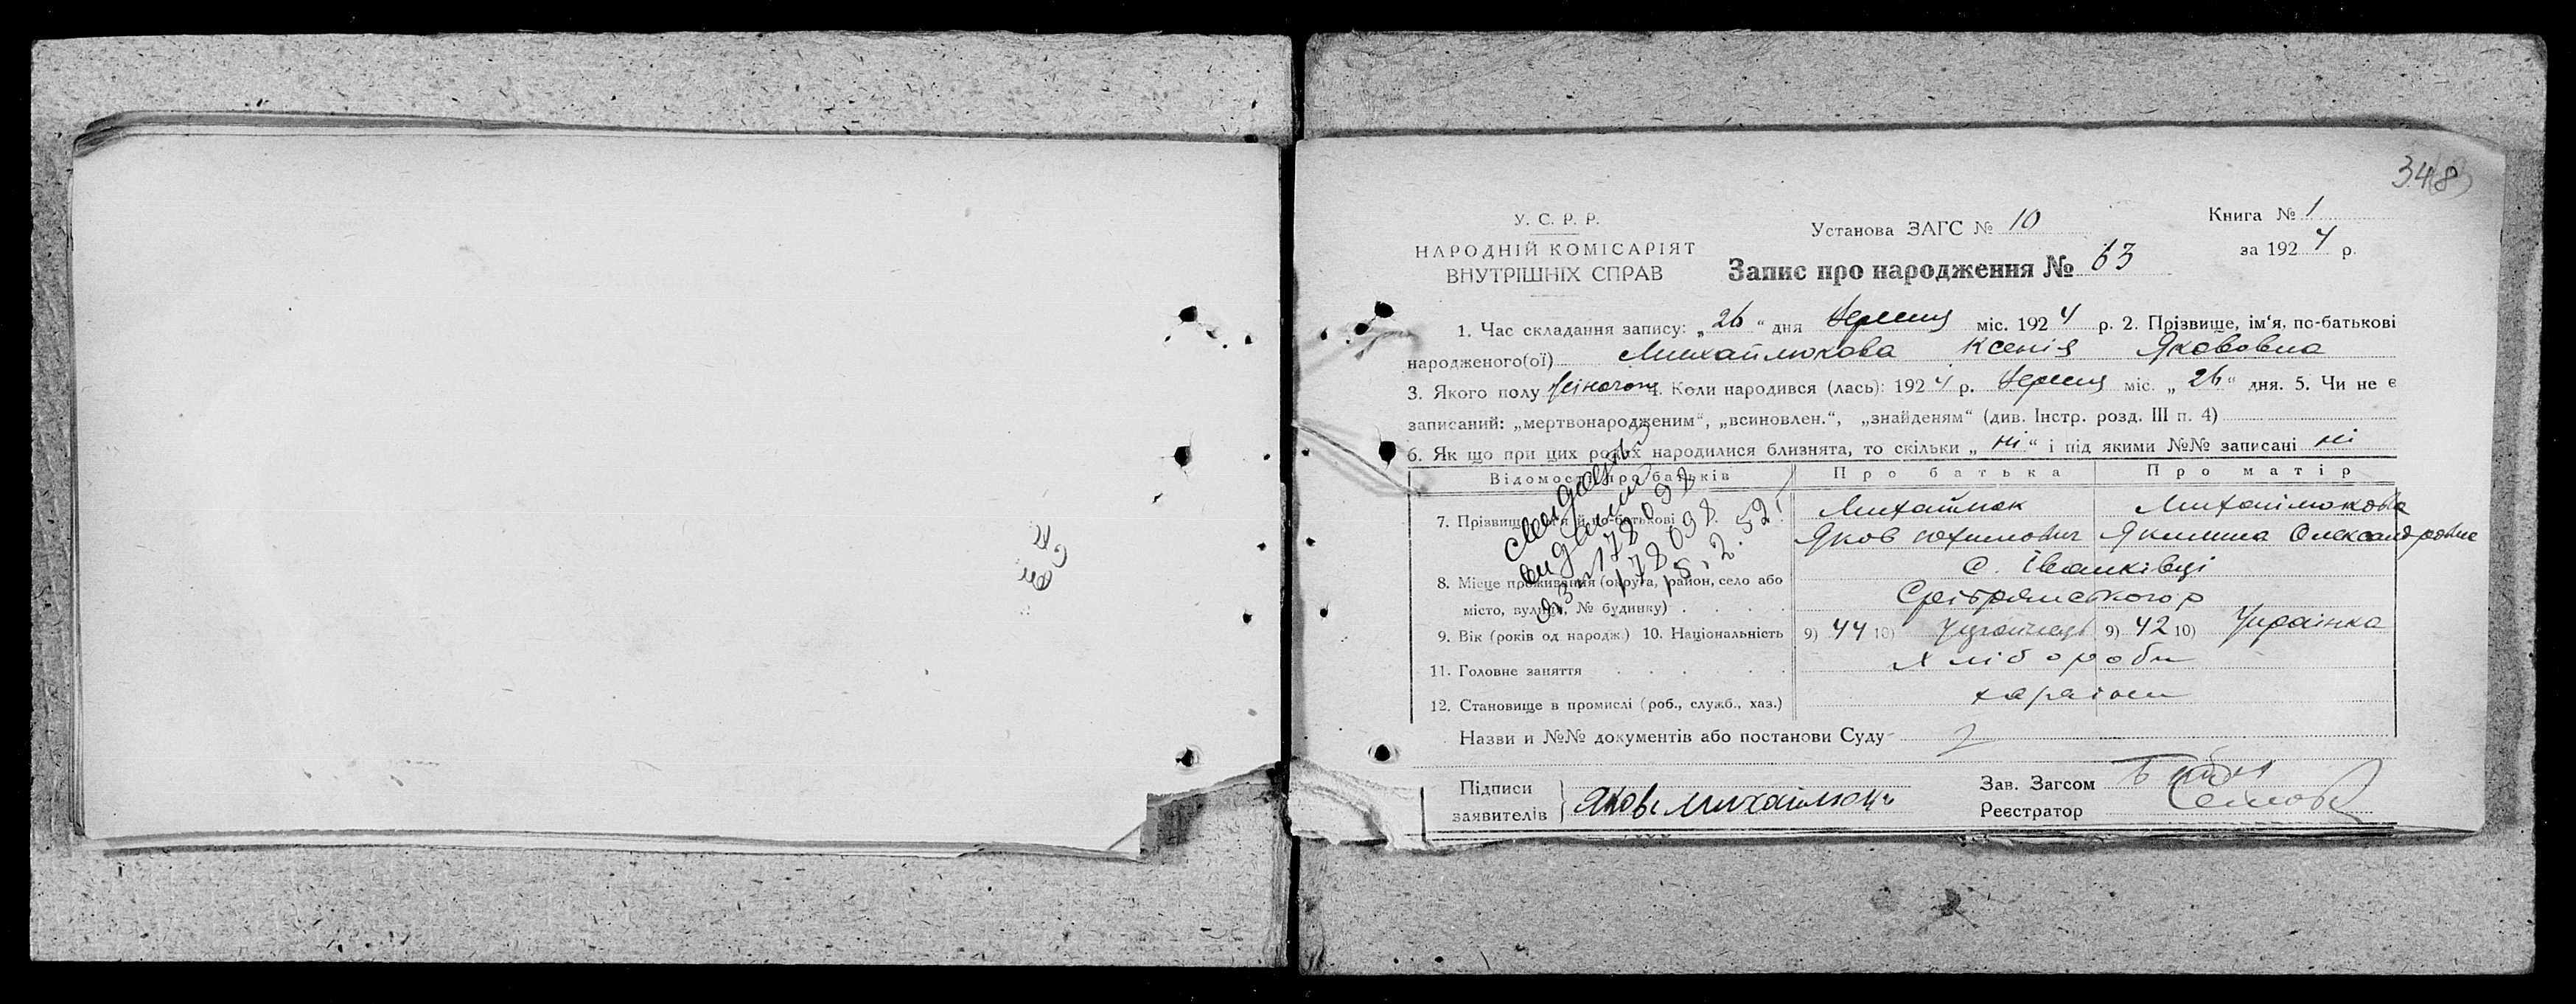 348
У. С. Р. Р.
НАРОДНІЙ КОМІСАРІЯТ
ВНУТРІШНІХ СПРАВ
Установа ЗАГС № 10
Книга № 1
за 1924 р.
Запис про народження № 63
1. Час складання запису: „26“ дня Вересня міс. 1924 р. 2. Прізвище, ім‘я, по-батькові
народженого(ої) Михайлюкова Ксенія Якововна
3. Якого полу жіночого 4. Коли народився (лась): 1924 р. Вересня міс. „26“ дня. 5. Чи не є
записаний: „мертвонародженим“, „всиновлен.“, „знайденям“ (див. Інстр. розд. III п. 4)
6. Як що при цих родах народилися близнята, то скільки „ні“ і під якими №№ записані ні
Відомості про батьків Про батька Про матір
7. Прізвище, ім'я й по-батькові Михайлюк Михайлюкова
Яков Якилина Олександровна
8. Місце проживання (округа, район, село або С. Іванківці
місто, вулиця, № будинку)
9. Вік (років од народж.) 10. Національність 9) 44 10) Українець 9) 42 10) Українка
11. Головне заняття Хлібороби
12. Становище в промислі (роб., служб., хаз.)
Назви и №№ документів або постанови Суду
Підписи
заявителів Яковъ Михайлюкъ
Зав. Загсом
Реєстратор
178098
15.2.52